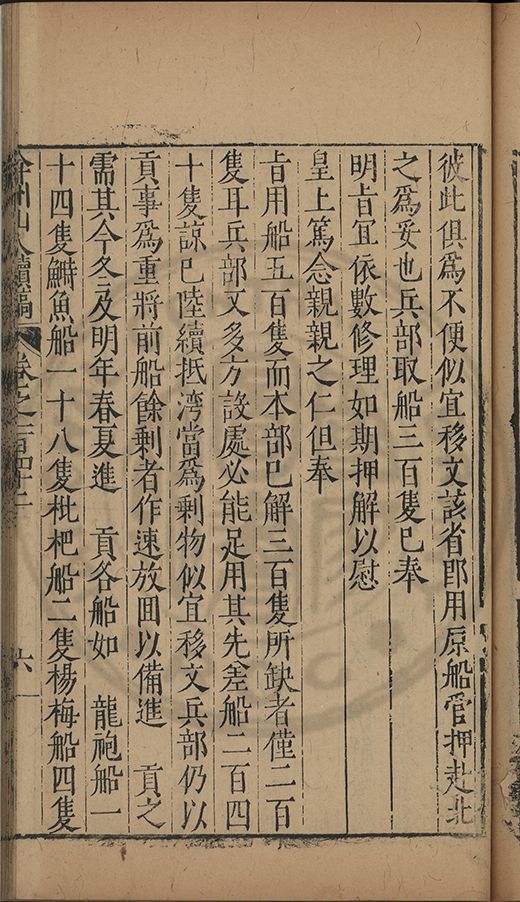 彼此俱爲不便似宜移文該省卽用原船管押赴北
之爲妥也兵部取船三百隻已奉
明旨宜依數修理如期押解以慰
皇上篤念親親之仁但奉
旨用船五百隻而本部已解三百隻所缺者僅二百
隻耳兵部又多方設處必能足用其先差船二百四
十隻諒已陸續抵湾當爲剩物似宜移文兵部仍以
貢事爲重將前船餘剩者作速放囬以備進 貢之
需其今冬及明年春夏進 貢各船如 龍袍船一
十四隻鰣魚船一十八隻枇杷船二隻楊梅船四隻
弇州山人續稿 卷之一百四十二 六